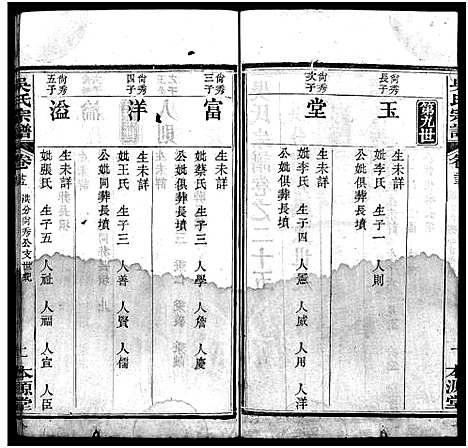 吳氏宗譜
第九世
尙秀長子
玉
生未詳
妣李氏 生子一 人則
公妣俱葬長墳
尙秀次子
堂
生未詳
妣李氏 生子四 人憲 人威 人用 人洋
公妣俱葬長墳
本源堂
尙秀三子
富
生未詳
妣蔡氏 生子三 人學 人詹 人慶
公妣俱葬長墳
尙秀四子
洋
生未詳
妣王氏 生子三 人善 人賢 人儒
公妣同葬長墳
尙秀五子
溢
生未詳
妣張氏 生子五 人祉 人福 人宣 人臣
吳氏宗譜
洪分尙秀公支世系
本源堂